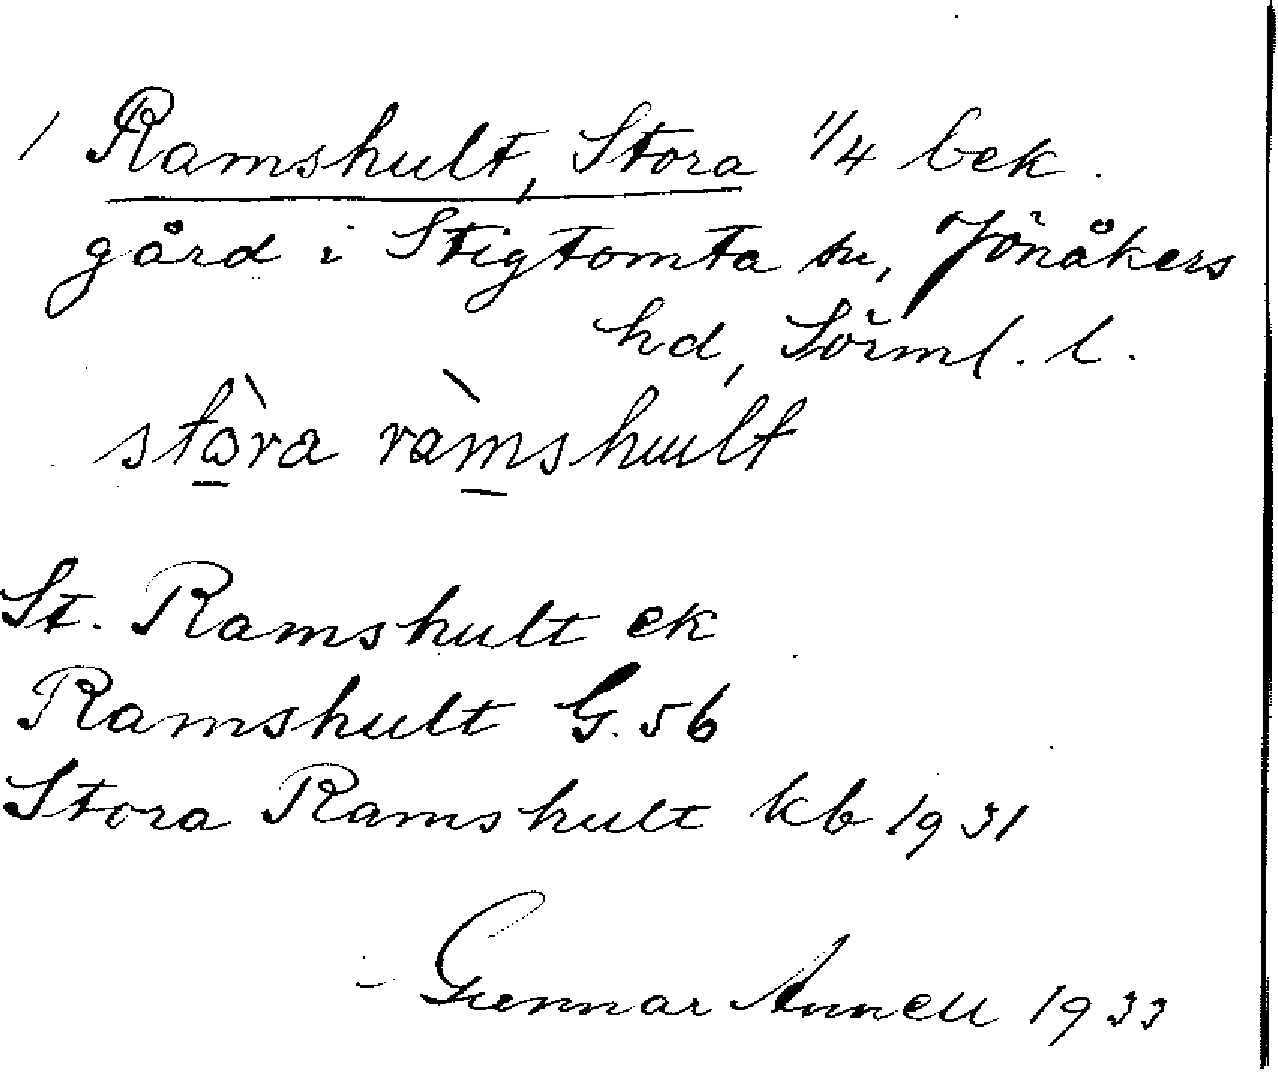 / Ramshult, Stora 1/4 bek.
gård i Stigtomta sn, Jönåkers
hd, Sörml. l.
stòra ràmshult
St. Ramshult ek
Ramshult G. 56
Stora Ramshult kb 1931
Gunnar Annell 1933